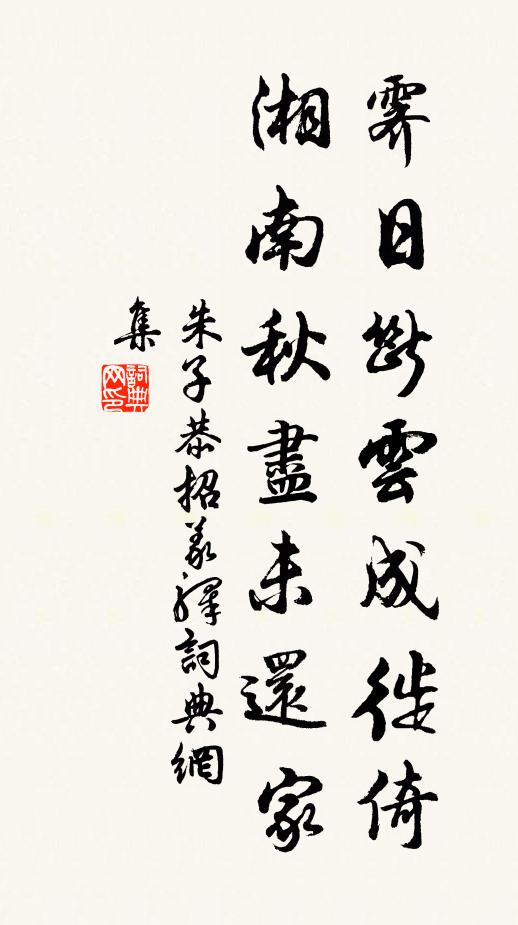 霽日斷雲成徙倚
湘南秋盡未還家
朱子恭招义釋詞典網
集
詞典
网印